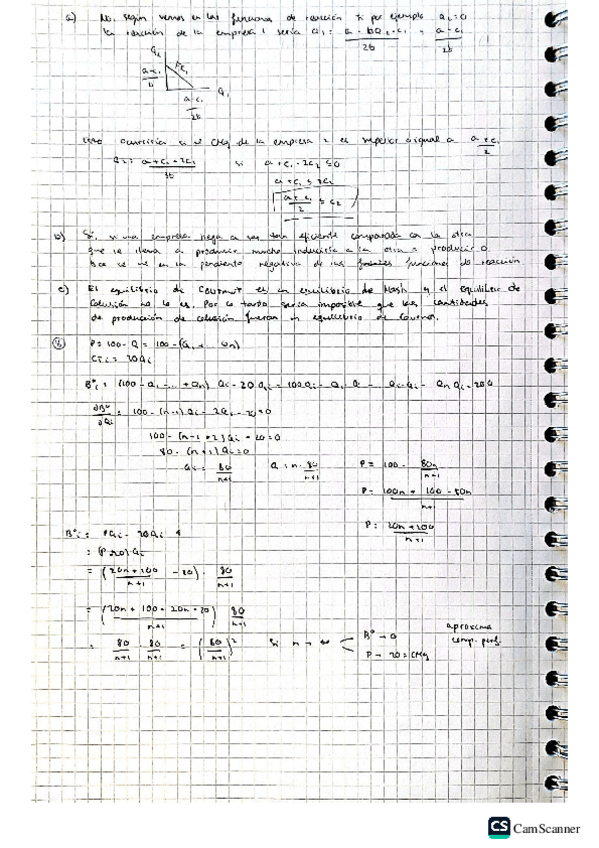 a) No. Según vemos en las funciones de reacción si por ejemplo Q₂=0
la reacción de la empresa 1 sería Q₁ = (a - bQ₂ - c₁)/2b = (a-c₁)/2b
Q₂
(a-c₁)/b FR₁
Q₁
(a-c₁)/2b
si el CMg de la empresa 2 es superior o igual a (a+c₁)/2
Q₂ = (a+c₁-2c₂)/3b si a+c₁-2c₂ ≤ 0
a+c₁ ≤ 2c₂
(a+c₁)/2 ≤ c₂
b) Si, si una empresa llega a ser tan eficiente comparada con la otra
que se lleva a producir mucho induciría a la otra a producir 0
se ve en la pendiente negativa de las funciones de reacción
c) El equilibrio de Cournot es un equilibrio de Nash y el equilibrio de
colusión no lo es. Por lo tanto sería imposible que las cantidades
de producción de colusión fueran un equilibrio de Cournot.
8 P = 100 - Q = 100 - (Q₁ + ... Qn)
CTi = 20Qi
Bºi = (100 - Q₁ - ... + Qn) Qi - 20Qi = 100Qi - Q₁Qi - ... QiQi - QnQi - 20Qi
∂Bº/∂Qi = 100 - (n-1)Qi - 2Qi - 20 = 0
100 - (n-1+2)Qi - 20 = 0
80 - (n+1)Qi = 0
Qi = 80/(n+1) Q = n · 80/(n+1) P = 100 - 80n/(n+1)
P = (100n + 100 - 80n)/(n+1)
P = (20n+100)/(n+1)
Bºi = PQi - 20Qi
= (P-20)Qi
= ((20n+100)/(n+1) - 20) · 80/(n+1)
= ((20n + 100 - 20n - 20)/(n+1)) 80/(n+1)
= 80/(n+1) · 80/(n+1) = (80/(n+1))² Si n → ∞ Bº → 0 aproxima
P → 20 = CMg comp. perf.
CS CamScanner